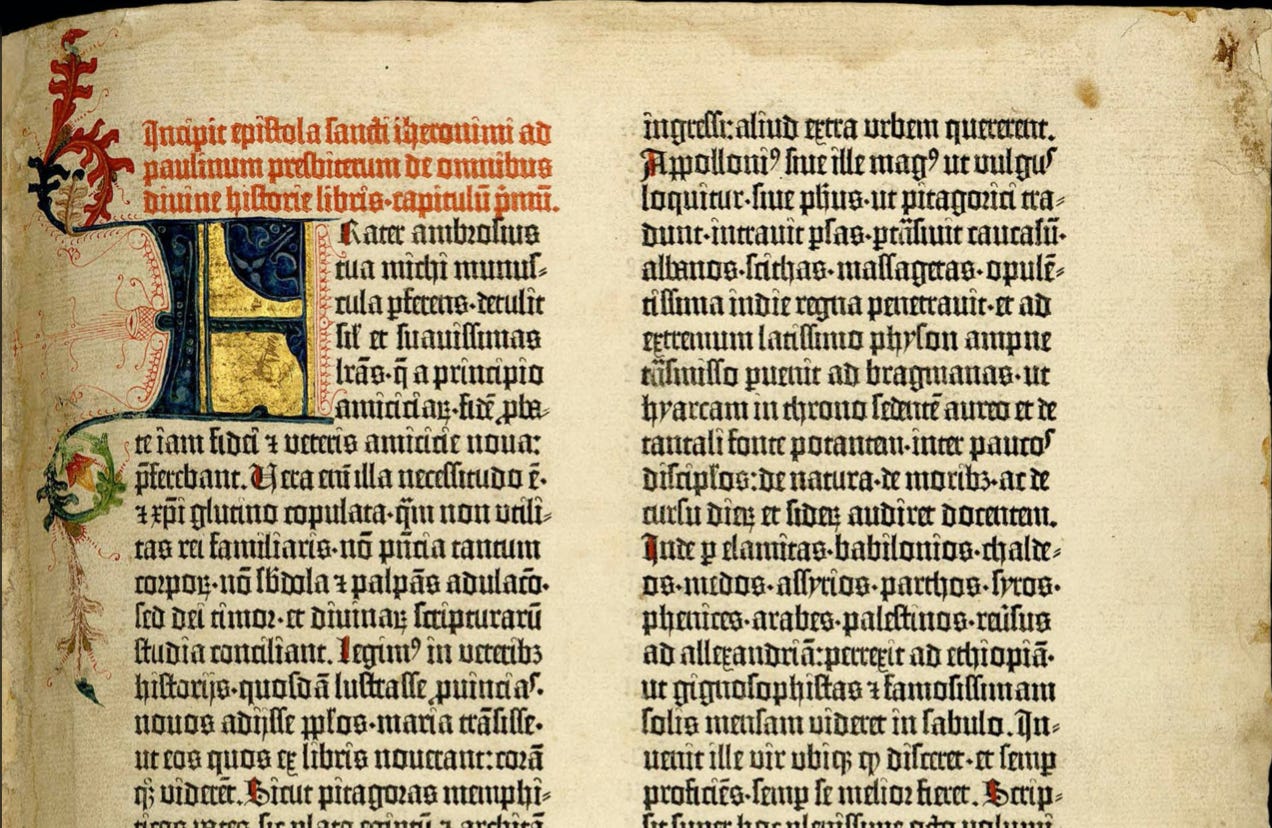 Incipit epistola sancti iheronimi ad
paulinum presbiterum de omnibus
divine historie libris·capitulū p̄mū.
Frater ambrosius
tua michi munus-
cula ꝑferens·detulit
sil̄ et suavissimas
lr̄as·q̄ a principio
amiciciaꝝ·fidē ꝓba-
te iam fidei ⁊ veteris amicicie nova:
p̄ferebant. Vera em̄ illa necessitudo ē·
⁊ xp̄i glutino copulata·q̄m non utili-
tas rei familiaris·nō p̄ncia tantum
corpoꝝ·nō sb̄dola ⁊ palpās adulaco̅·
sed dei timor·et divinaꝝ scripturarū
studia conciliant. Legimꝰ in veteribꝫ
historijs·quosdā lustrasse ꝓvincias·
novos adijsse pp̄los·maria trāsisse·
ut eos quos ex libris noverant: corā
qꝫ viderēt. Sicut pitagoras memphi-
ticos vates·sic plato egiptū ⁊ architā
ingressi: aliud extra urbem quererent.
Appolloniꝰ sive ille magꝰ ut vulgus
loquitur·sive ph̄us·ut pitagorici tra-
dunt·intravit ꝑsas·ꝑtrāsivit caucasū·
albanos·scithas·massagetas·opulē-
tissima indie regna penetravit·et ad
extremum latissimo physon ampne
trāsmisso ꝑvenit ad bragmanas·ut
hyarcam in throno sedentē aureo et de
tantali fonte potantem·inter paucos
discipl̄os: de natura·de moribꝫ·ac de
cursu dieꝝ et sideꝝ audiret docentem.
Inde ꝑ elamitas·babilonios·chalde-
os·medos·assyrios·parthos·syros·
phenices·arabes·palestinos·reversus
ad allexandriā: perrexit ad ethiopiā·
ut gignosophistas ⁊ famosissimam
solis mensam videret in sabulo. In-
venit ille vir ubiqꝫ qꝫ disceret·et semp̲
proficiēs·semp̲ se melior fieret. Scrip-
sit super hoc plenissime octo volumi-